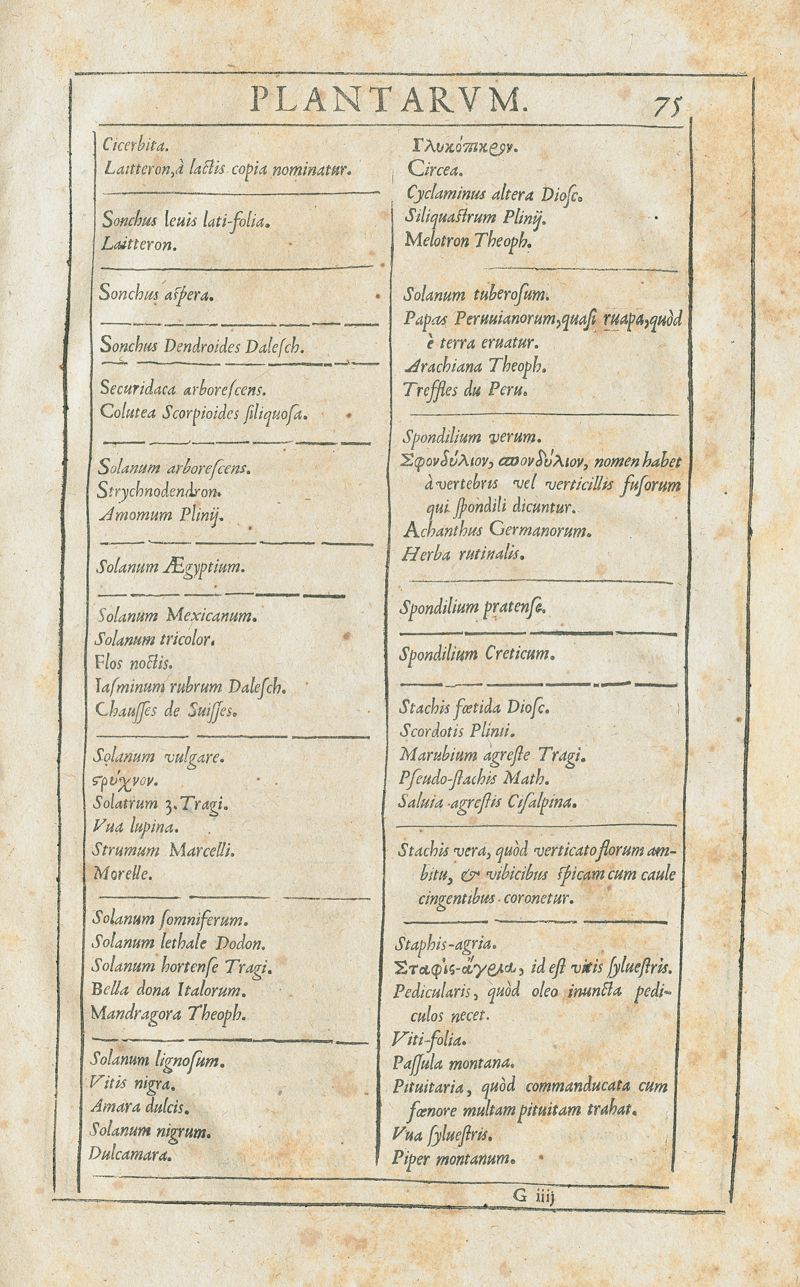 PLANTARVM.
75
Cicerbita.
Laitteron, à lactis copia nominatur.
Sonchus leuis lati-folia.
Laitteron.
Sonchus aſpera.
Sonchus Dendroides Daleſch.
Securidaca arboreſcens.
Colutea Scorpioides ſiliquoſa.
Solanum arboreſcens.
Strychnodendron.
Amomum Plinij.
Solanum Ægyptium.
Solanum Mexicanum.
Solanum tricolor.
Flos noctis.
Iaſminum rubrum Daleſch.
Chauſſes de Suiſſes.
Solanum vulgare.
ϛρύχνον.
Solatrum 3. Tragi.
Vua lupina.
Strumum Marcelli.
Morelle.
Solanum ſomniferum.
Solanum lethale Dodon.
Solanum hortenſe Tragi.
Bella dona Italorum.
Mandragora Theoph.
Solanum lignoſum.
Vitis nigra.
Amara dulcis.
Solanum nigrum.
Dulcamara.
Γλυκόπικρον.
Circea.
Cyclaminus altera Dioſc.
Siliquaſtrum Plinij.
Melotron Theoph.
Solanum tuberoſum.
Papas Peruuianorum, quaſi ruapa, quòd
è terra eruatur.
Arachiana Theoph.
Treffles du Peru.
Spondilium verum.
Σφονδύλιον, σπονδύλιον, nomen habet
à vertebris vel verticillis fuſorum
qui ſpondili dicuntur.
Achanthus Germanorum.
Herba rutinalis.
Spondilium pratenſe.
Spondilium Creticum.
Stachis fœtida Dioſc.
Scordotis Plinii.
Marubium agreſte Tragi.
Pſeudo-ſtachis Math.
Saluia agreſtis Ciſalpina.
Stachis vera, quòd verticato florum am-
bitu, & vibicibus ſpicam cum caule
cingentibus coronetur.
Staphis-agria.
Σταφὶς-ἄγρια, id eſt vitis ſylueſtris.
Pedicularis, quòd oleo inuncta pedi-
culos necet.
Viti-folia.
Paſſula montana.
Pituitaria, quòd commanducata cum
fœnore multam pituitam trahat.
Vua ſylueſtris.
Piper montanum.
G iiij